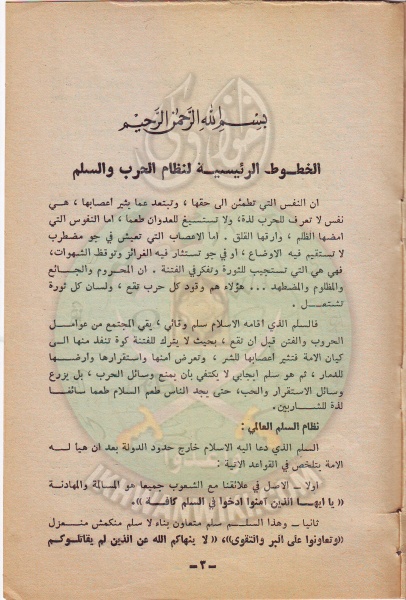 بسم الله الرحمن الرحيم
الخطوط الرئيسية لنظام الحرب والسلم
ان النفس التي تطمئن الى حقها ، وتبتعد عما يثير اعصابها ، هي
نفس لا تعرف للحرب لذة، ولا تستسيغ للعدوان طعما ، اما النفوس التي
امضها الظلم ، وارقها القلق . اما الاعصاب التي تعيش في جو مضطرب
لا تستقيم فيه الاوضاع ، او في جو تستثار فيه الغرائز وتوقظ الشهوات،
فهي هي التي تستجيب للثورة وتفكر في الفتنة . ان المحروم والجائع
والمظلوم والمضطهد ... هؤلاء هم وقود كل حرب تقع ، ولسان كل ثورة
تشتعل .
فالسلم الذي اقامه الاسلام سلم وقائي ، يقي المجتمع من عوامل
الحروب والفتن قبل ان تقع ، بحيث لا يترك للفتنة كوة تنفذ منها الى
كيان الامة فتثير اعصابها للشر ، وتعرض امنها واستقرارها وارضها
للدمار ، ثم هو سلم ايجابي لا يكتفي بأن يمنع وسائل الحرب ، بل يزرع
وسائل الاستقرار والحب، حتى يجد الناس طعم السلام طعما سائغا
لذة للشاربين .
نظام السلم العالمي :
السلم الذي دعا اليه الاسلام خارج حدود الدولة بعد ان هيأ له
الامة يتلخص في القواعد الاتية :
اولا ــ الاصل في علاقتنا مع الشعوب جميعا هو المسالمة والمهادنة
« يا ايها الذين آمنوا ادخوا في السلم كافة » .
ثانيا ــ وهذا السلم سلم متعاون بناء لا سلم منكمش منعزل
«وتعاونوا على البر والتقوى»، « لا ينهاكم الله عن الذين لم يقاتلوكم
ــ ٣ ــ